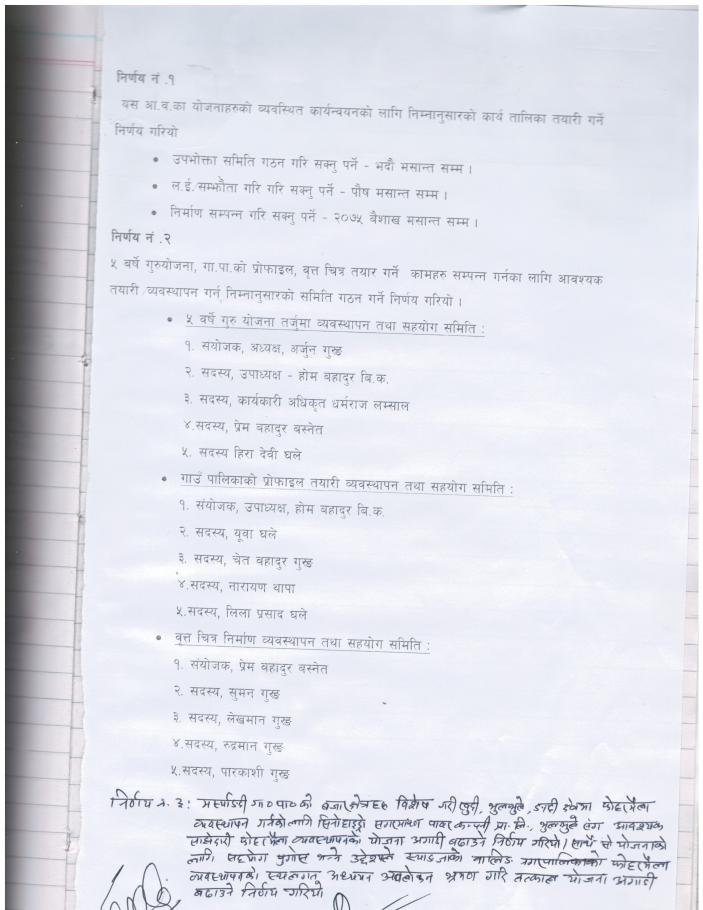 निर्णय नं .१
यस आ.व.का योजनाहरुको व्यवस्थित कार्यन्वयनको लागि निम्नानुसारको कार्य तालिका तयारी गर्ने
निर्णय गरियो
• उपभोक्ता समिति गठन गरि सक्नु पर्ने - भदौ मसान्त सम्म ।
• ल.ई.सम्झौता गरि गरि सक्नु पर्ने - पौष मसान्त सम्म ।
• निर्माण सम्पन्न गरि सक्नु पर्ने - २०७५ बैशाख मसान्त सम्म ।
निर्णय नं .२
५ बर्षे गुरुयोजना, गा.पा.को प्रोफाइल, बृत्त चित्र तयार गर्ने कामहरु सम्पन्न गर्नका लागि आवश्यक
तयारी व्यवस्थापन गर्न निम्नानुसारको समिति गठन गर्ने निर्णय गरियो ।
• ५ वर्षे गुरु योजना तर्जुमा व्यवस्थापन तथा सहयोग समिति :
१. संयोजक, अध्यक्ष, अर्जुन गुरुङ
२. सदस्य, उपाध्यक्ष - होम बहादुर बि.क.
३. सदस्य, कार्यकारी अधिकृत धर्मराज लम्साल
४.सदस्य, प्रेम बहादुर बस्नेत
५. सदस्य हिरा देवी घले
• गाउँ पालिकाको प्रोफाइल तयारी व्यवस्थापन तथा सहयोग समिति :
१. संयोजक, उपाध्यक्ष, होम बहादुर बि.क.
२. सदस्य, यूवा घले
३. सदस्य, चेत बहादुर गुरुङ
४.सदस्य, नारायण थापा
५.सदस्य, लिला प्रसाद घले
• बृत्त चित्र निर्माण व्यवस्थापन तथा सहयोग समिति :
१. संयोजक, प्रेम बहादुर बस्नेत
२. सदस्य, सुमन गुरुङ
३. सदस्य, लेखमान गुरुङ
४.सदस्य, रुद्रमान गुरुङ
५.सदस्य, पारकाशी गुरुङ
निर्णय नं. ३: मर्स्याङदी गा०पा० को बजार क्षेत्रहरु विशेष गरी खुदी, भुलभुले, ङादी क्षेत्रमा फोहरमैला
व्यवस्थापन गर्नको लागि सिनोहाइड्रो सगरमाथा पावर कम्पनी प्रा.लि., भुलभुले संग आवश्यक
साझेदारी फोहरमैला व्यवस्थापनको योजना अगाडी बढाउने निर्णय गरियो। साथै सो योजनाको
लागि सहयोग पुगोस भन्ने उद्देश्यले स्याङजाको वालिङ नगरपालिकाको फोहरमैला
व्यवस्थापनको स्थलगत अध्ययन अवलोकन भ्रमण गरि तत्काल योजना अगाडी
बढाउने निर्णय गरियो